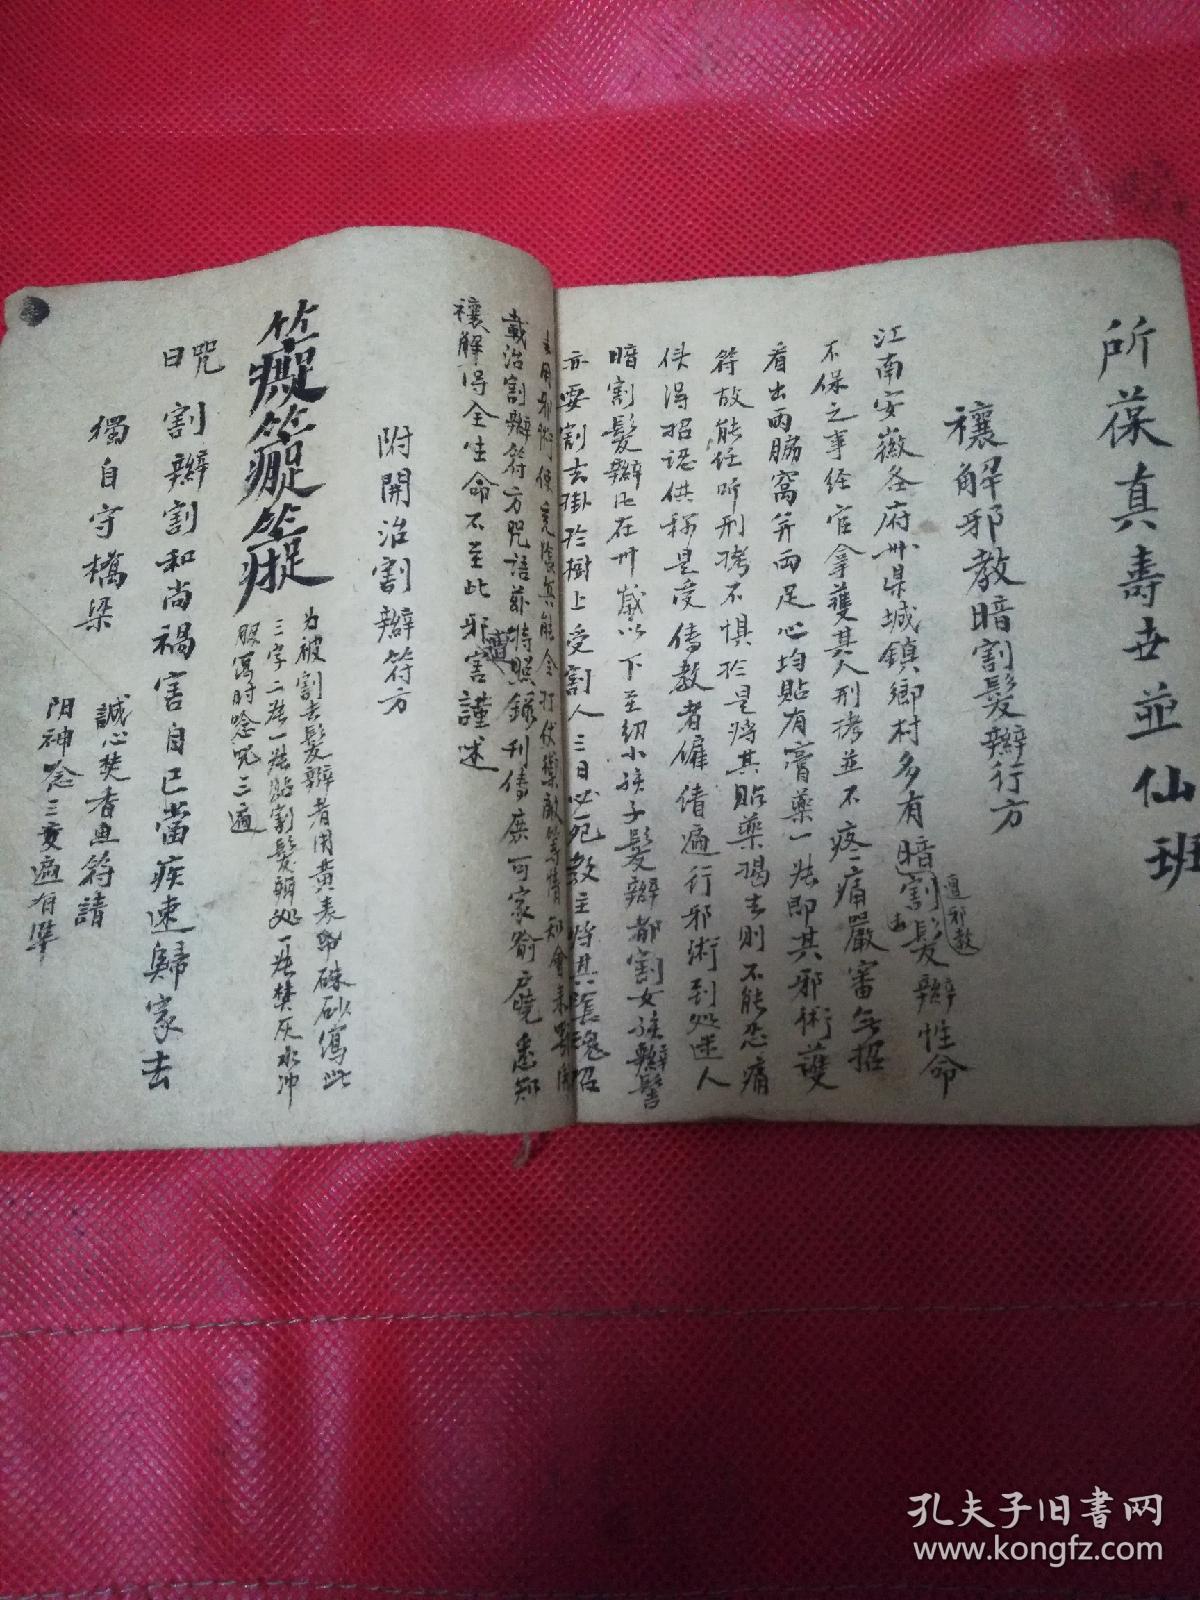 所葆真壽世並仙班
禳解邪教暗割髮辮行方
江南安徽各府州县城鎮鄉村多有遭邪教暗割去髮辮性命
不保之事经官拿獲其人刑拷並不疼痛嚴審無招
看出兩脇窩并兩足心均貼有膏藥一張即其邪術護
符故能任听刑拷不惧於是将其貼藥揭去則不能忍痛
供得招認供称是受傳教者僱倩遍行邪術到处迷人
暗割髮辮凡在卅歲以下至幼小孩子髮辮都割女孩辮髻
亦要割去掛於樹上受割人三日必死教主将其陰魂招
去用邪術使
載治割辮符方咒語茲特照録刊傳庶可家喻户曉悉知
禳解得全生命不至此遭邪害謹述
附開治割辮符方
为被割去髮辮者用黄表紙硃砂寫此
三字二張一張貼割髮辮处一張焚灰水冲
服寫时唸咒三遍
咒曰
割辮割和尚禍害自己當疾速歸家去
獨自守橋梁
誠心焚香画符請
阴神唸三变遍有準
孔夫子旧书网
www.kongfz.com